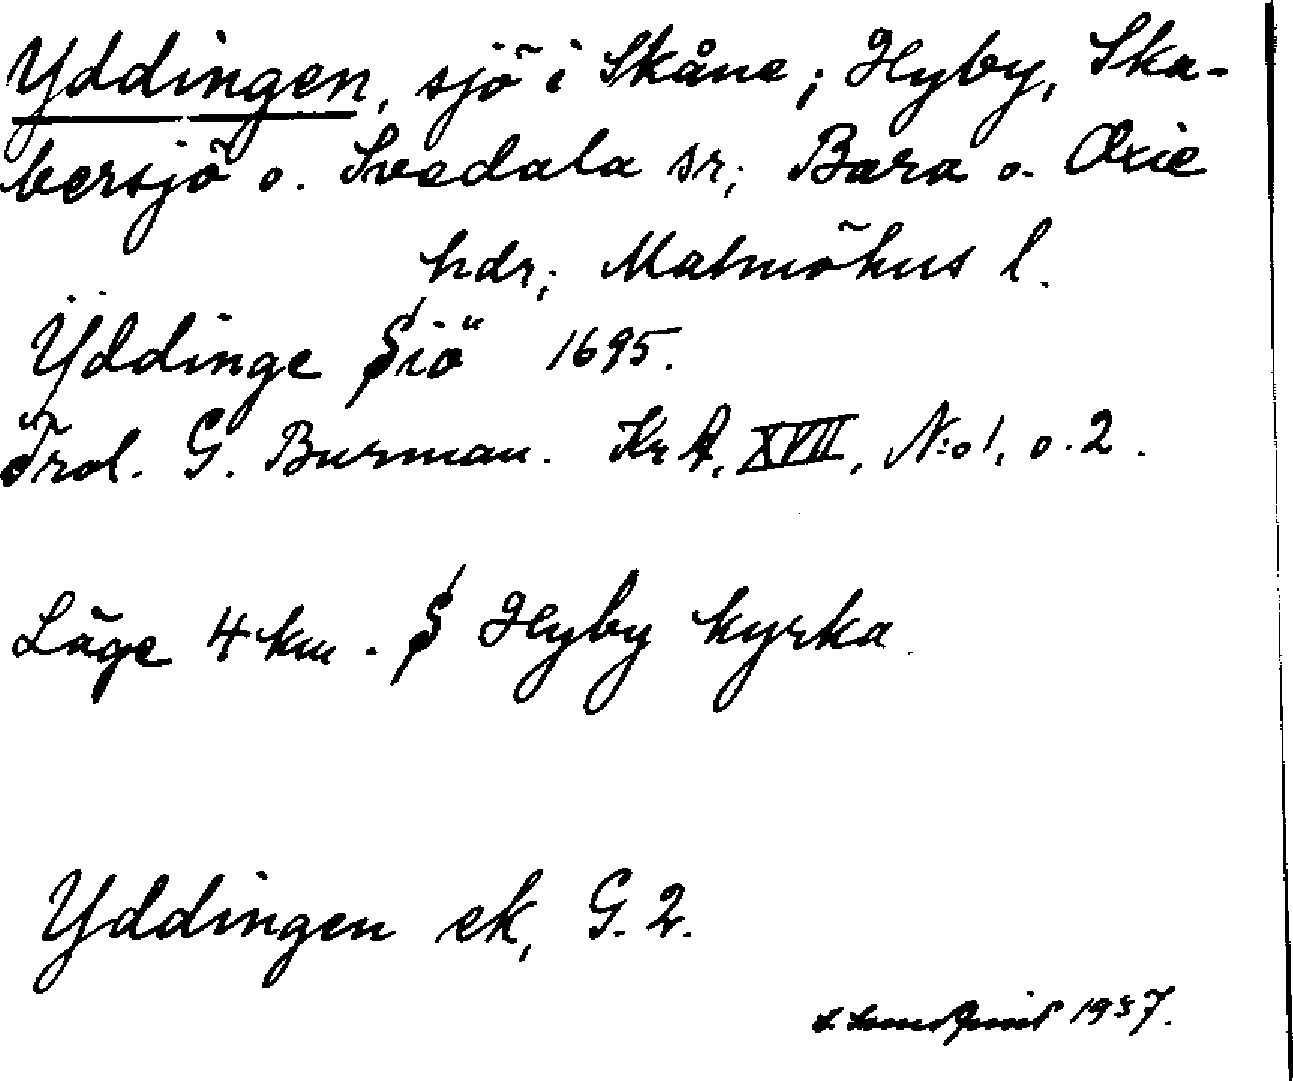 Yddingen, sjö i Skåne; Hyby, Ska-
bersjö o. Svedala sr; Bara o. Oxie
hdr; Malmöhus l.
Ÿddinge Siö 1695.
Trol. G. Burman. KrA, XVII, N:o 1, o. 2.
Läge 4 km. S Hyby kyrka.
Yddingen ek, G. 2.
1937.